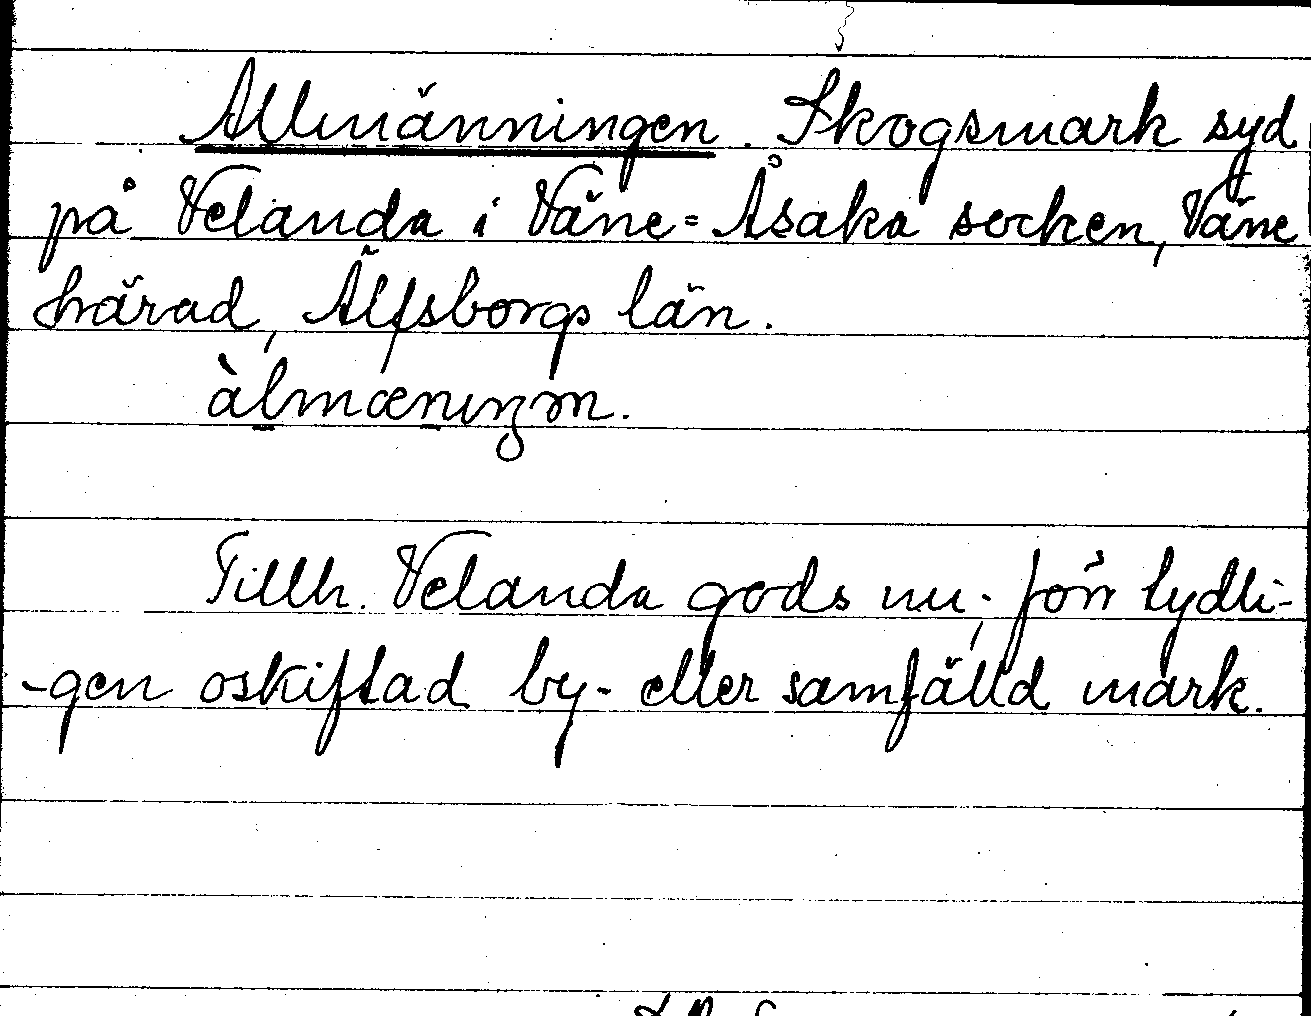 Allmänningen. Skogsmark syd
på Velanda i Väne=Åsaka socken, Väne
härad, Älfsborgs län.
àlmænıŋm.
Tillh. Velanda gods nu; förr tydli-
-gen oskiftad by- eller samfälld mark.